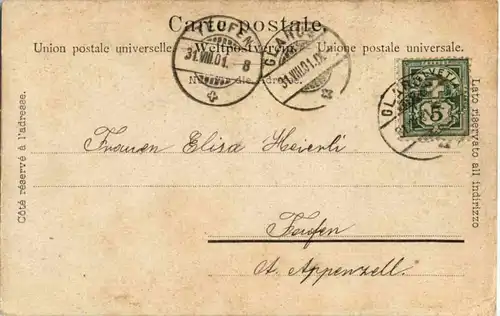 Carte postale.
Union postale universelle. Weltpostverein. Unione postale universale.
TEUFEN
31.VIII.01. 8
GLARUS
31.VIII.01.IX
Nur für die Adresse.
HELVETIA
5
GLARUS
Côté réservé à l'adresse.
Lato riservato all indirizzo
Frauen Elisa Heierli
Teufen
Ct. Appenzell.